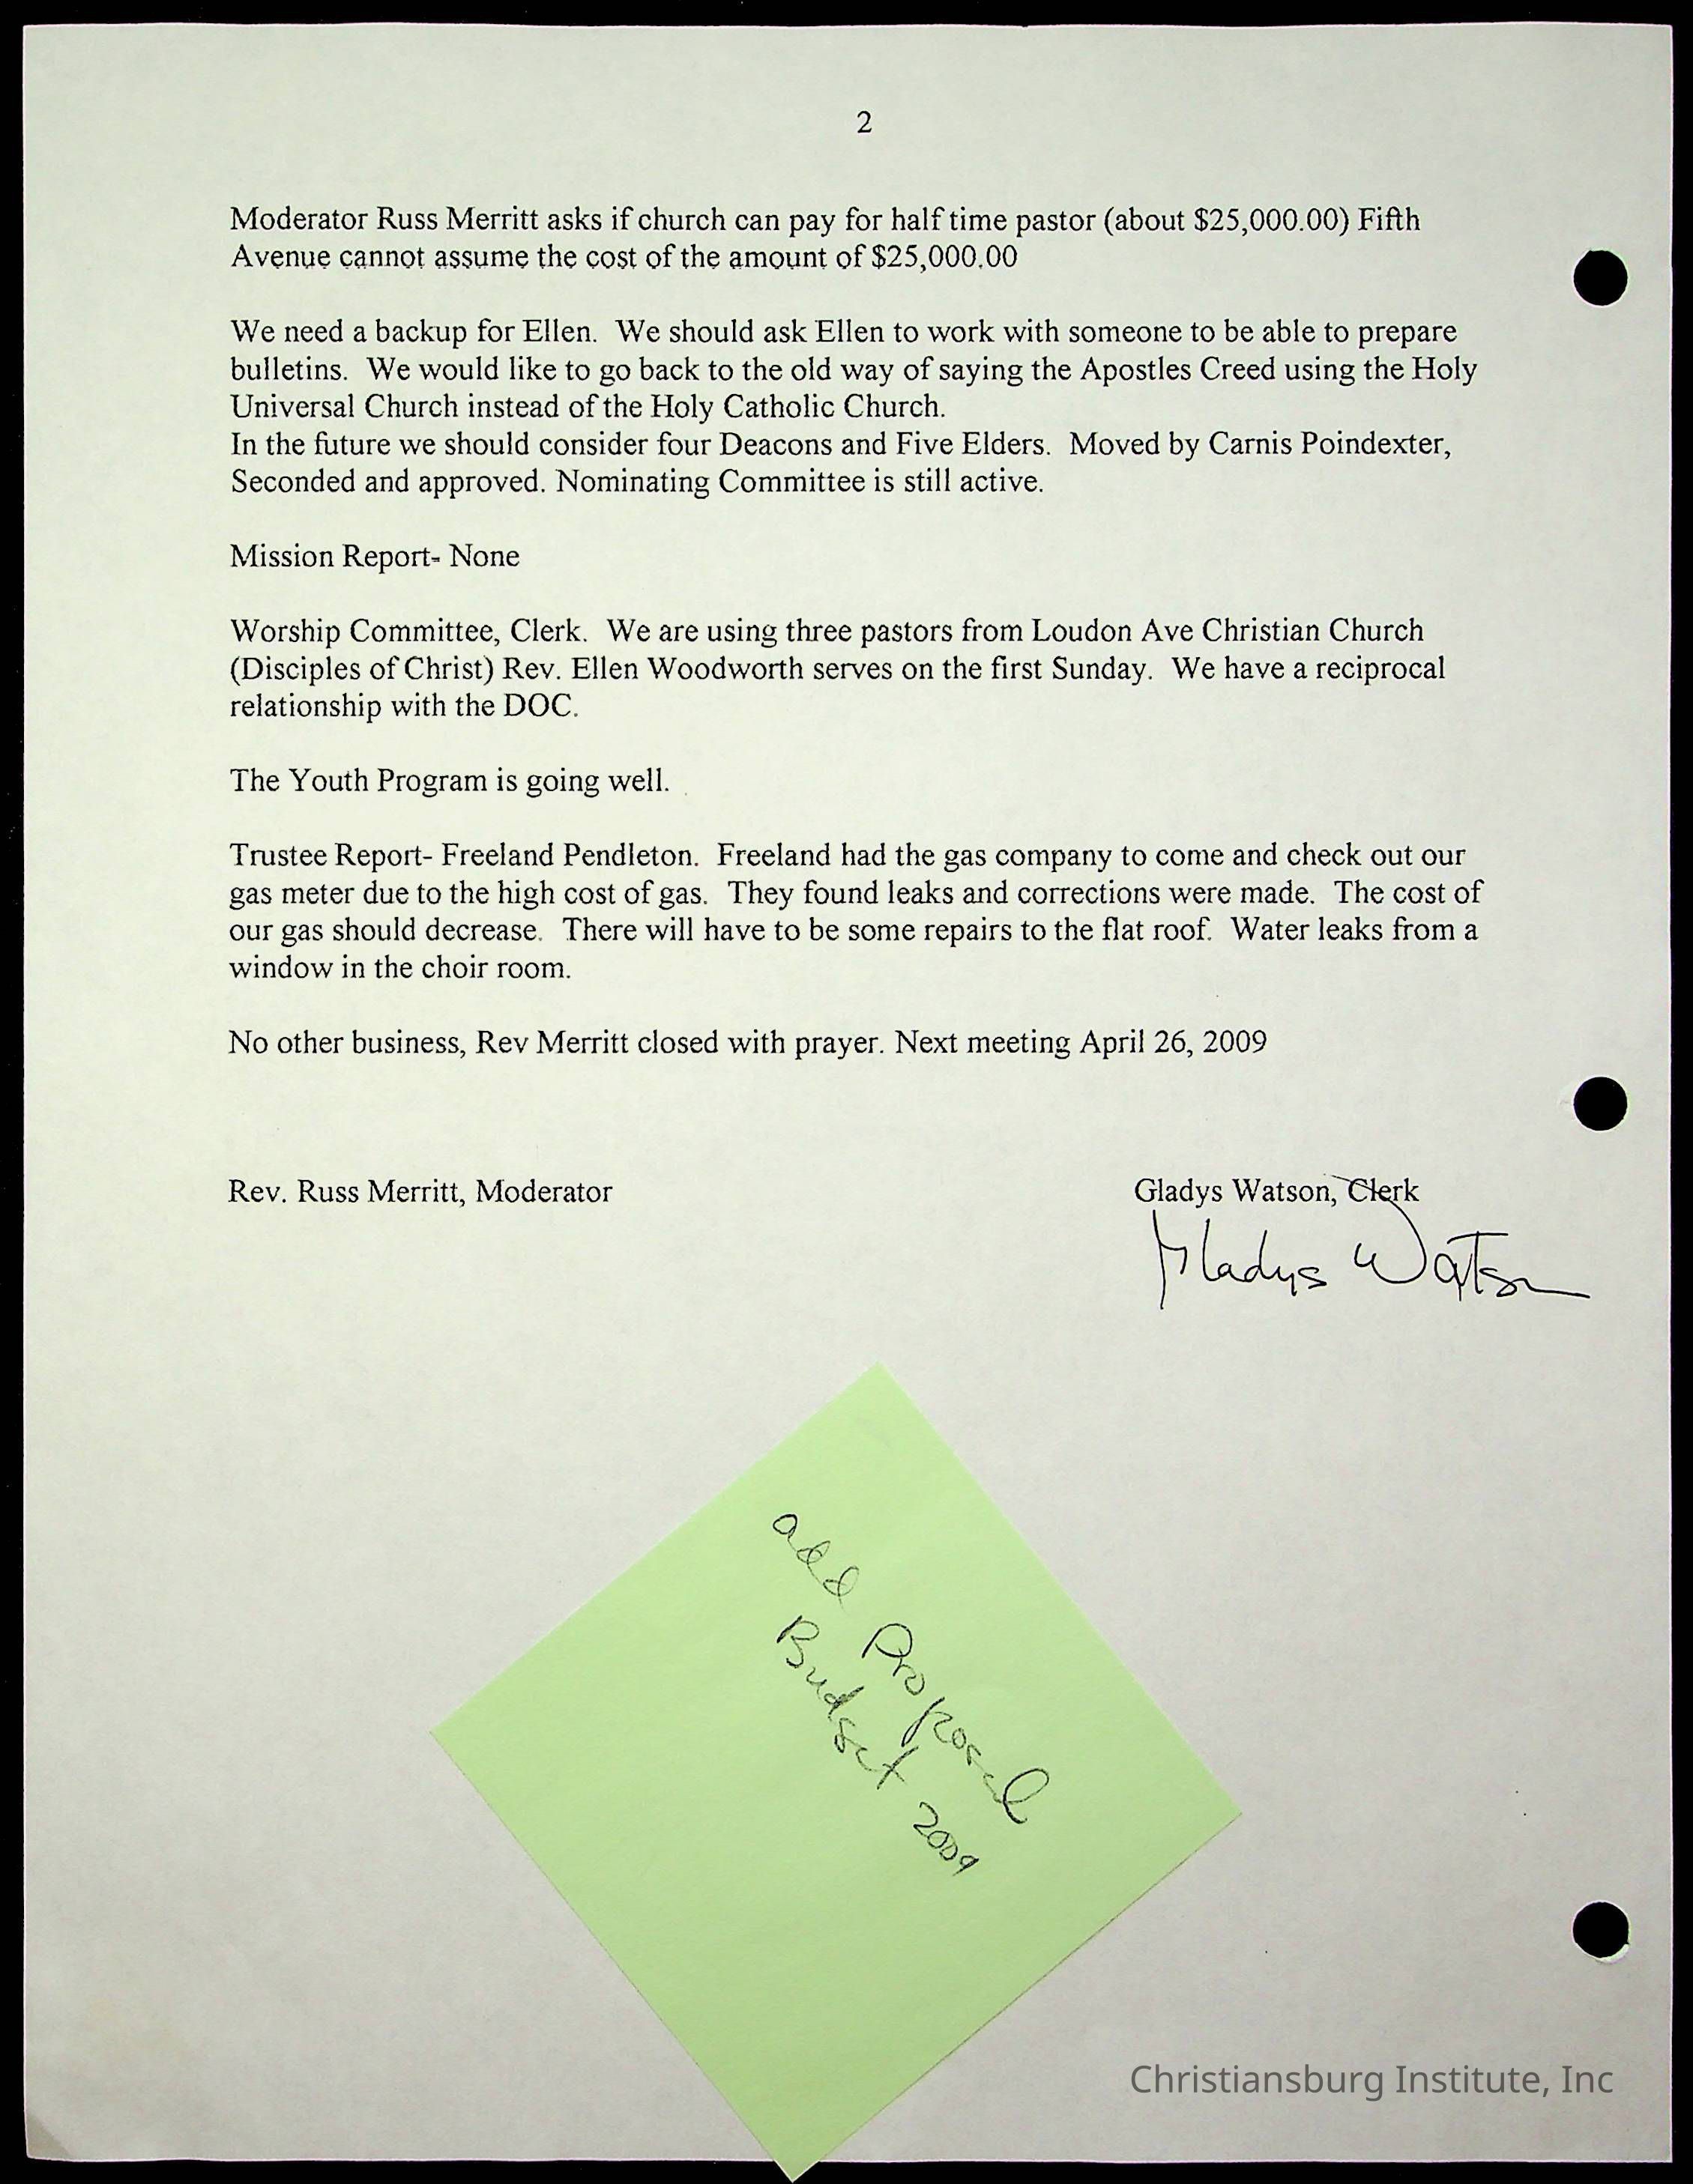 2
Moderator Russ Merritt asks if church can pay for half time pastor (about $25,000.00) Fifth
Avenue cannot assume the cost of the amount of $25,000.00
We need a backup for Ellen. We should ask Ellen to work with someone to be able to prepare
bulletins. We would like to go back to the old way of saying the Apostles Creed using the Holy
Universal Church instead of the Holy Catholic Church.
In the future we should consider four Deacons and Five Elders. Moved by Carnis Poindexter,
Seconded and approved. Nominating Committee is still active.
Mission Report- None
Worship Committee, Clerk. We are using three pastors from Loudon Ave Christian Church
(Disciples of Christ) Rev. Ellen Woodworth serves on the first Sunday. We have a reciprocal
relationship with the DOC.
The Youth Program is going well.
Trustee Report- Freeland Pendleton. Freeland had the gas company to come and check out our
gas meter due to the high cost of gas. They found leaks and corrections were made. The cost of
our gas should decrease. There will have to be some repairs to the flat roof. Water leaks from a
window in the choir room.
No other business, Rev Merritt closed with prayer. Next meeting April 26, 2009
Rev. Russ Merritt, Moderator
Gladys Watson, Clerk
Gladys Watson
add Proposed
Budget 2009
Christiansburg Institute, Inc